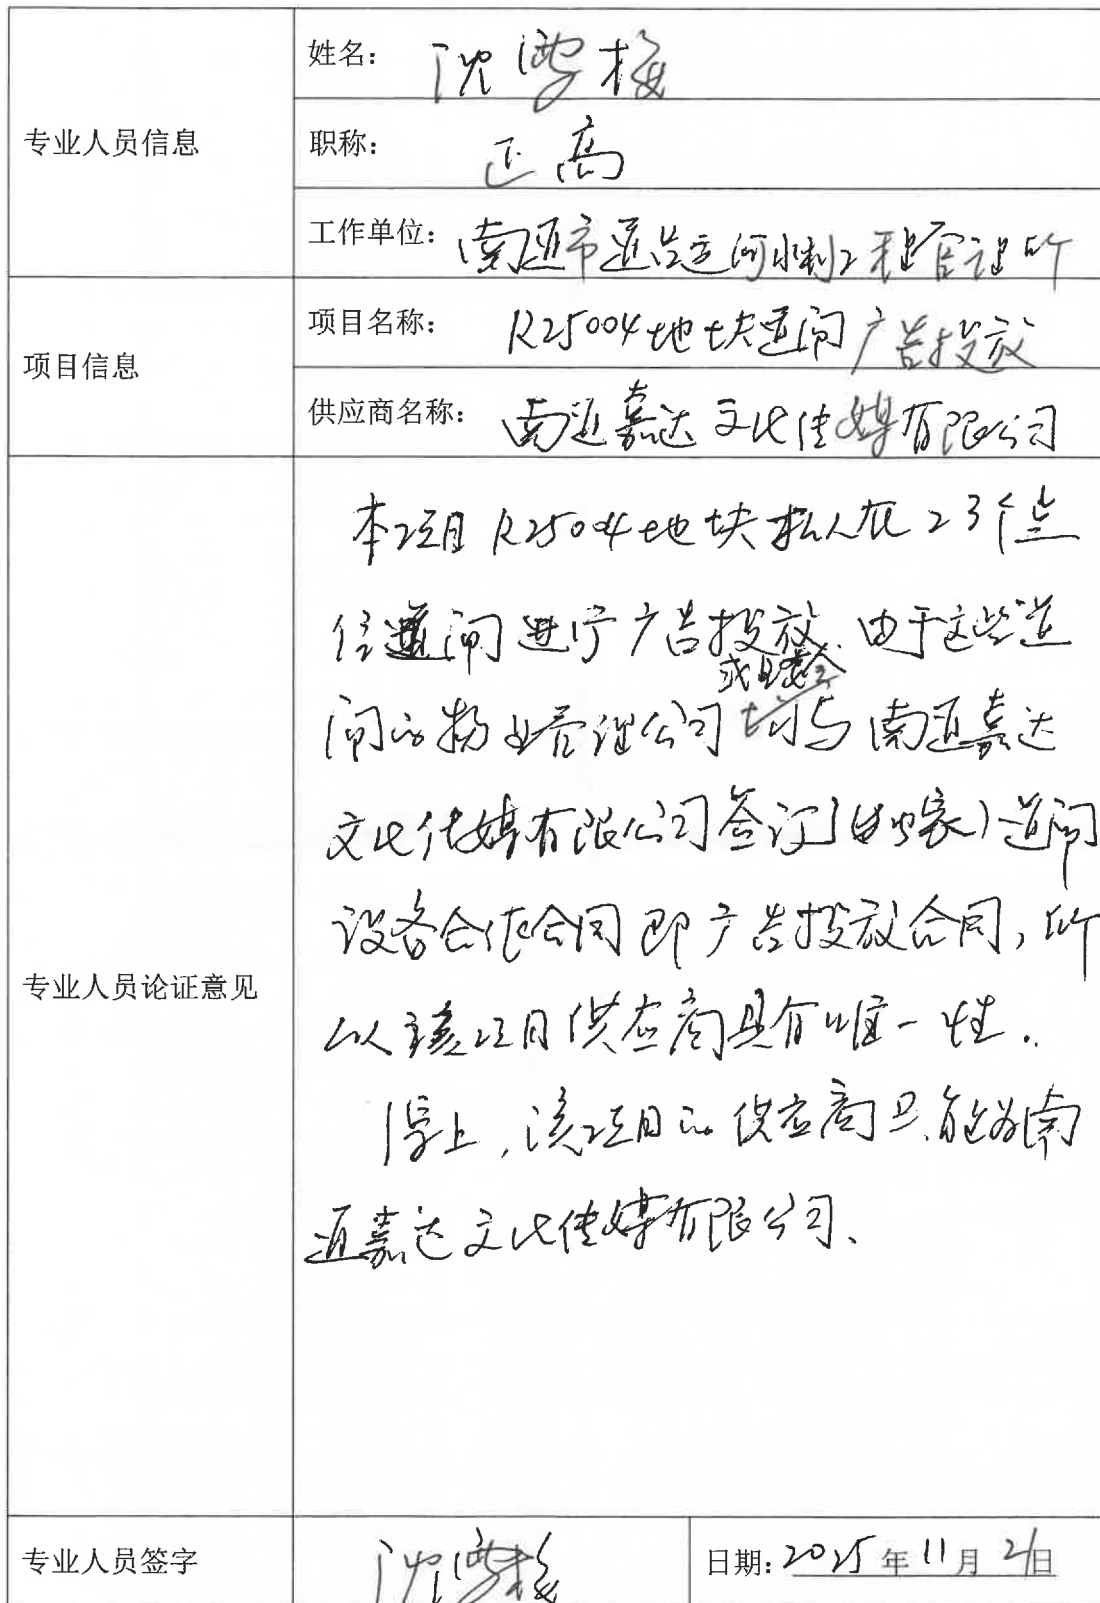 专业人员信息
姓名：沈雪梅
职称：正高
工作单位：南通市通吕运河水利工程管理所
项目信息
项目名称：R25004地块道闸广告投放
供应商名称：南通嘉达文化传媒有限公司
专业人员论证意见
本项目R25004地块拟在23个点
位道闸进行广告投放，由于这些道
闸的物业管理公司或居委会与南通嘉达
文化传媒有限公司签订(独家)道闸
设备合作合同即广告投放合同，所
以该项目供应商具有唯一性．
综上，该项目的供应商只能为南
通嘉达文化传媒有限公司．
专业人员签字
沈雪梅
日期：2025年11月21日